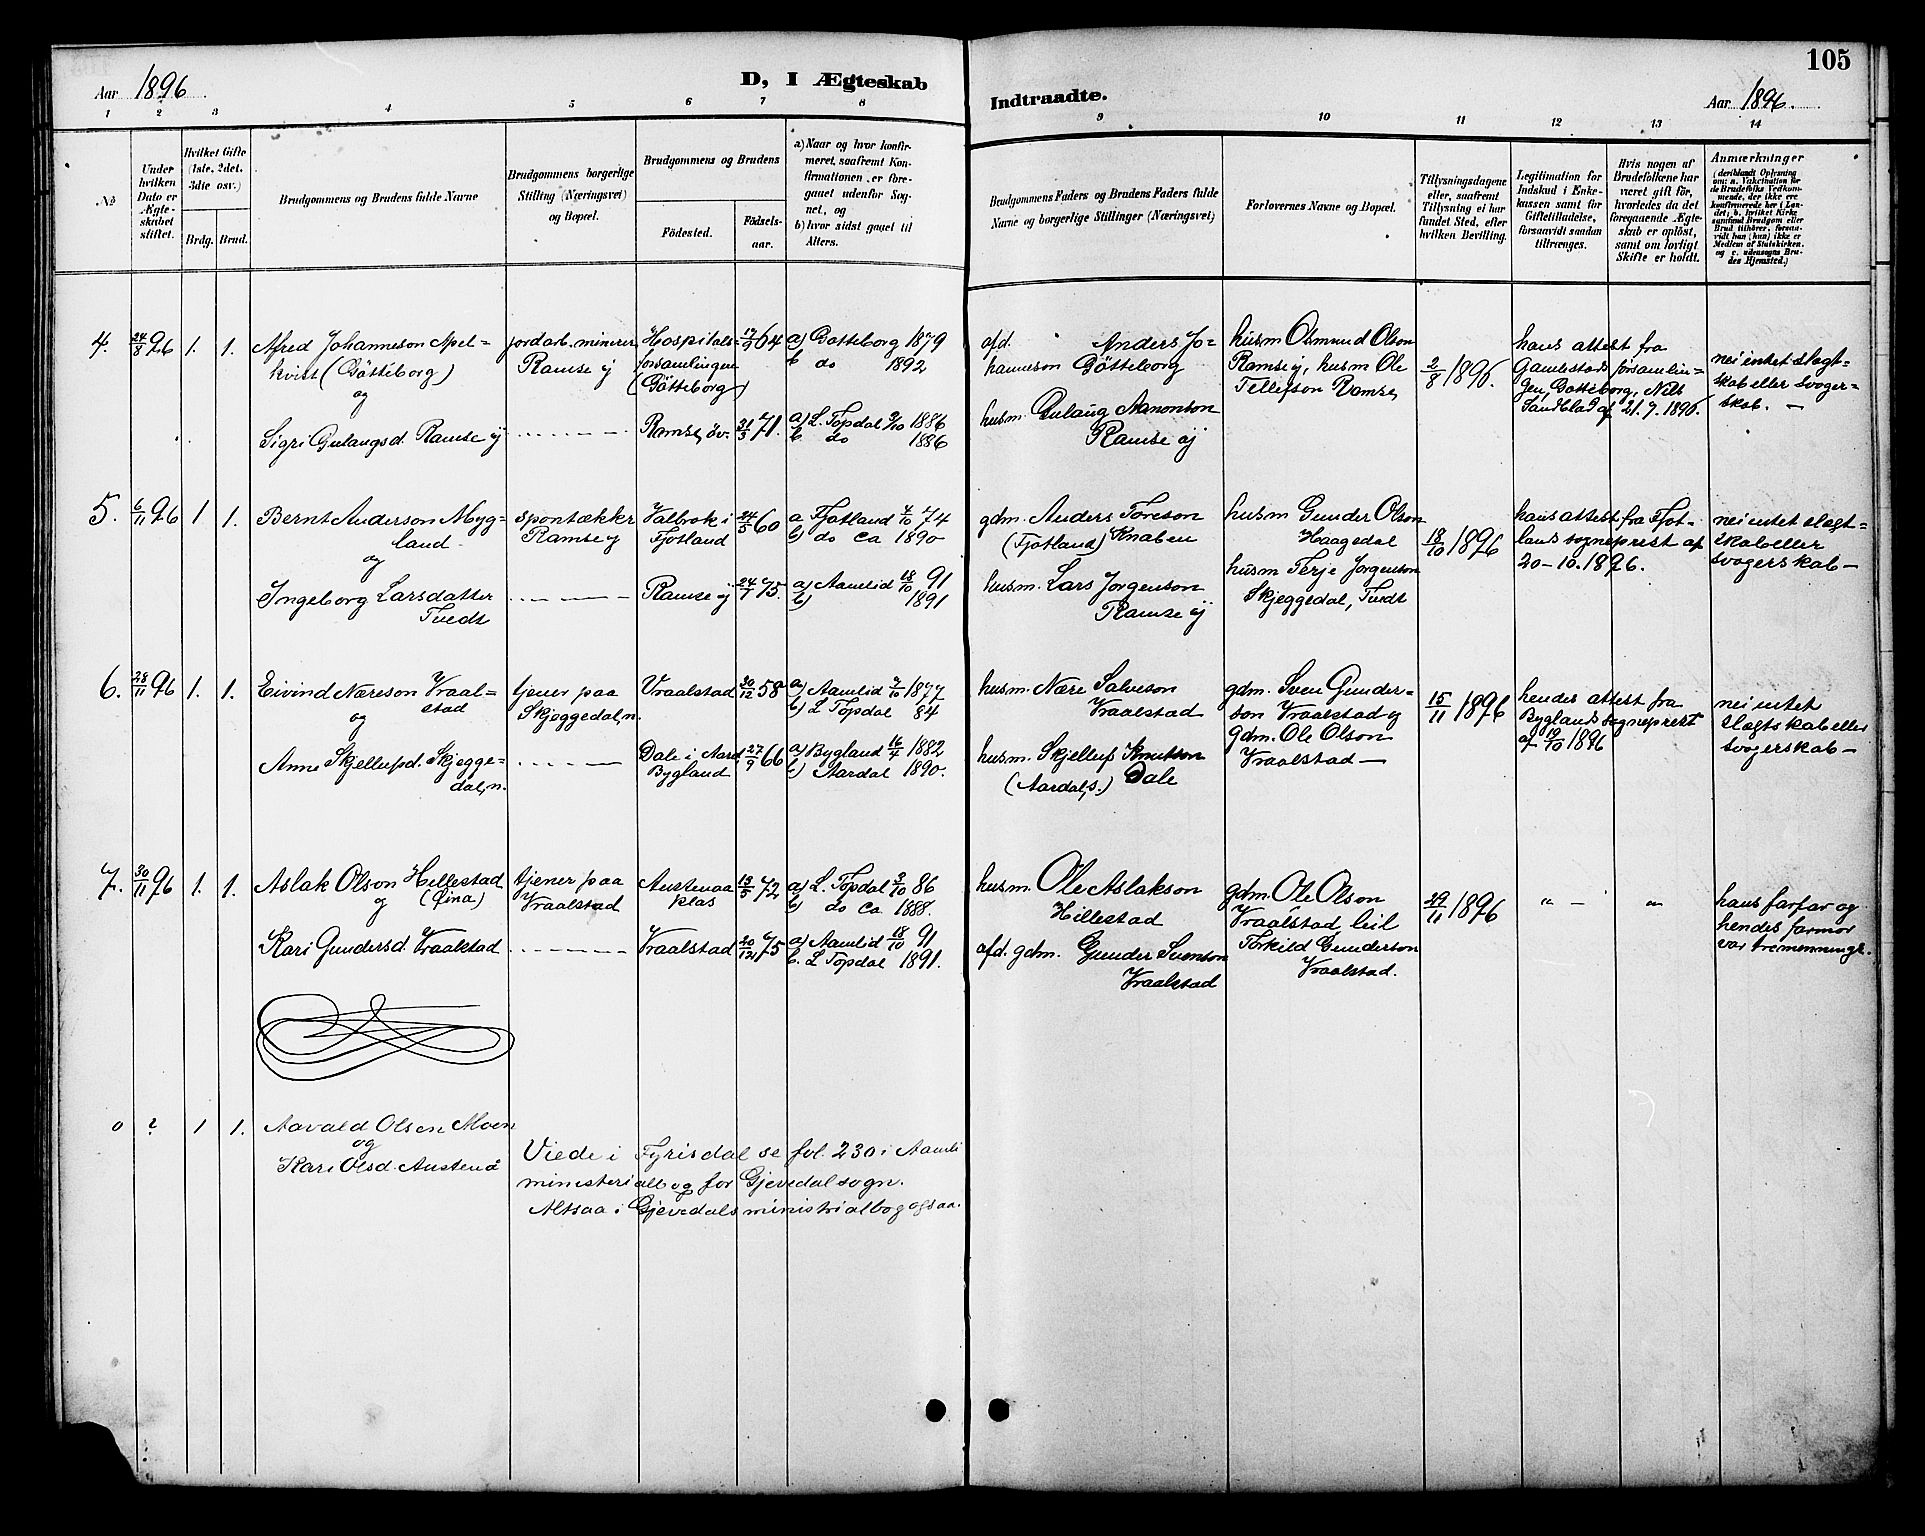 105
Aar 1896.
D, I Ægteskab
Indtraadte.
Aar 1896.
1 2 3 4 5 6 7 8 9 10 11 12 13 14
No
Under hvilken Dato er Ægteskabet stiftet.
Hvilket Gifte (1ste, 2det, 3die osv.)
Brdg. Brud.
Brudgommens og Brudens fulde Navne
Brudgommens borgerlige Stilling (Næringsvei) og Bopæl.
Brudgommens og Brudens
Fødested.
Fødselsaar.
a) Naar og hvor konfirmeret, saafremt Konfirmationen er foregaaet udenfor Sognet, og
b) hvor sidst gaaet til Alters.
Brudgommens Faders og Brudens Faders fulde Navne og borgerlige Stillinger (Næringsvei)
Forlovernes Navne og Bopæl.
Tillysningsdagene eller, saafremt Tillysning ei har fundet Sted, efter hvilken Bevilling.
Legitimation for Indskud i Enkekassen samt for Giftetilladelse, forsaavidt saadan tiltrænges.
Hvis nogen af Brudefolkene har været gift før, hvorledes da det foregaaende Ægteskab er opløst, samt om lovligt Skifte er holdt.
Anmærkninger
(deriblandt Oplysning om: a. Vakcination for de Brudefolks Vedkommende, der ikke ere konfirmerede her i Landet; b. hvilket Kirkesamfund Brudgom eller Brud tilhører, forsaavidt han (hun) ikke er Medlem af Statskirken, og c. udensogns Brudes Hjemsted.)
4. 24/8 96 1. 1. Alfred Johanneson Apel=
kvist (Götteborg)
og
Sigri Gulaugsd. Ramse ij
jordarb. minerer
Ramse ij
Hospitals=
forsamlingen
(Götteborg)
64
Ramse, öv. 21/3 71.
a) Gotteborg 1879
b do 1892
a) L. Topdal 1886
b do 1886
afd. Anders Jo=
hanneson Götteborg
husm. Gulaug Aanonson
Ramse ij
husm Osmund Olson
Ramse ij, husm Ole
Tellefson Ramse,
2/8 1896.
hans attest fra
Gamlestads forsamlin=
gen, Gotteborg, Nils
Sandblad af 21.7.1896.
nei intet slagt=
skab eller svoger=
skab. —
5. 6/11 96 1 1. Bernt Anderson Myg=
land
og
Ingeborg Larsdatter
Tvedt
spontækker
Ramse ij
Valbrok i
Fjotland
24/5 60
Ramse ij 24/7 75.
a Fjotland 4/10 74
b) do ca 1890
a) Aamlid 18/10 91
b) 1891
gdm. Anders Toreson
(Fjotland) Knaben
husm. Lars Jorgenson
Ramse ij
husm Gunder Olson
Haagedal
husm Terje Jorgenson
Skjeggedal, Tvedt
18/10 1896
hans attest fra Fjot=
land sogneprest af
20-10.1896.
nei intet slagt=
skab eller
svogerskab —
6. 28/11 96 1. 1. Eivind Næreson Vraal=
stad
og
Anne Skjellufsd. Skjegge=
dal, n.
tjener paa
Skjeggedal, n.
Vraalstad 30/12 58
Dale i Aard.
Bygland
27/9 66
a) Aamlid 7/10 1877
b) L Topdal 84
a) Bygland 16/4 1882
b) Aardal 1890.
husm. Nære Salveson
Vraalstad
husm. Skjelluf Knutson
(Aardal, s.) Dale
gdm. Sven Gunder=
son Vraalstad og
gdm. Ole Olson
Vraalstad —
15/11 1896
hendes attest fra
Byglands sogneprest
af 19/10 1896
nei intet
slagtskab eller
svogerskab —
7. 30/11 96 1. 1. Aslak Olson Hillestad
og
Kari Gundersd. Vraalstad
tjener paa
Vraalstad
Austenaa
klas
13/5 72
Vraalstad 20/12 75
a) L. Topdal 3/10 86
b) do ca 1888.
a) Aamlid 18/10 91
b. L Topdal 1891.
husm. Ole Aslakson
Hillestad
afd. gdm. Gunder Svenson
Vraalstad
gdm. Ole Olson
Vraalstad, leil
Torkild Gunderson
Vraalstad.
29/11 1896
" — "
hans farfar og
hendes farmor
var tremenninge.
0 ? 1 1. Aavald Olsen Moen
og
Kari Olsd. Austenå
Viede i Fyrisdal se fol. 230 i Aamli
ministerialbog for Gjevedal sogn.
Altsaa i Gjevedals ministrialbog ogsaa.